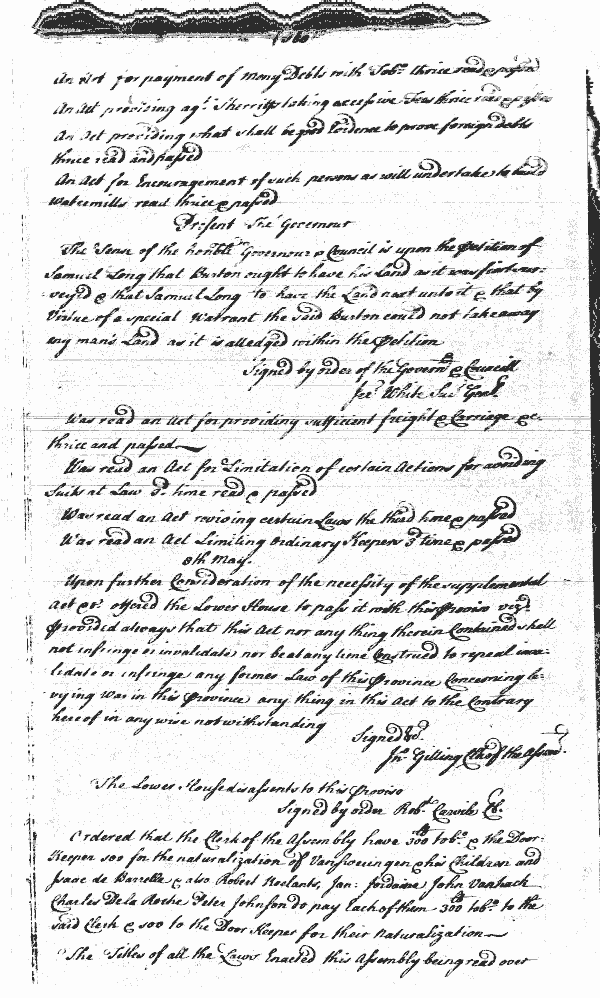 An Act for payment of Mony Debts with Tobo. thrice read & passed
An Act providing agt. Sherriffs taking excessive Fees thrice read & passed
An Act providing what shall be good Evidence to prove foreign debts
thrice read and passed
An Act for Encouragement of such persons as will undertake to build
Watermills read thrice & passed
Present The Governour
The Sense of the honble Governour & Council is upon the Petition of
Samuel Long that Burton ought to have his Land as it was first sur-
veyed & that Samuel Long to have the Land next unto it & that by
Virtue of a special Warrant the said Burton could not take away
any man's Land as it is alledged within the Petition
Signed by order of the Governr. & Councill
Jer. White Sur. Genl.
Was read an Act for providing sufficient freight & Carriage &c.
thrice and passed
Was read an Act for Limitation of certain Actions for avoiding
Suits at Law 3d. time read & passed
Was read an Act reviving certain Laws the third time & passed
Was read an Act Limiting Ordinary Keepers 3 time & passed
8th May.
Upon further Consideration of the necessity of the supplemental
Act &c. offered the Lower House to pass it with this Proviso viz.
Provided always that this Act nor any thing therein Contained shall
not infringe or invalidate nor be at any time Construed to repeal inva-
lidate or infringe any former Law of this Province Concerning le-
vying War in this Province any thing in this Act to the Contrary
hereof in any wise notwithstanding
Signed &c.
Jno. Gittings Clk of the Assem.
The Lower House disassents to this Proviso
Signed by order Robt. Carvile Cl.
Ordered that the Clerk of the Assembly have 500 lb tobo. & the Door-
Keeper 500 for the naturalization of Vansweringen & his Children and
Isaac de Barrette & also Robert Roelants, Jan: Jordaine John Vanhack
Charles De la Roche Peter Johnson do pay Each of them 300 lb tobo. to the
said Clerk & 500 to the Door Keeper for their Naturalization
The Titles of all the Laws Enacted this Assembly being read over